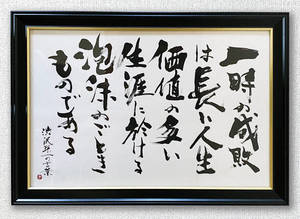 一時の成敗
は長い人生
価値の多い
生涯に於ける
泡沫のごとき
ものである
渋沢栄一の言葉